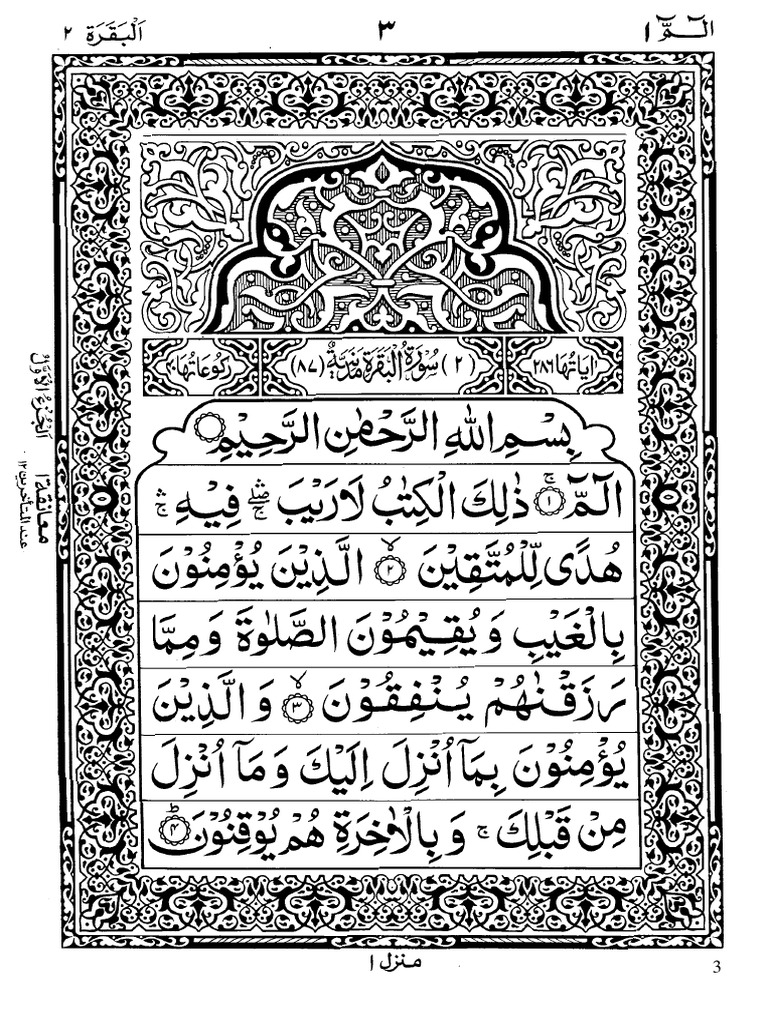 الٓمّٓ ١
٣
اَلْبَقَرَة ٢
اٰيَاتُهَا ٢٨٦
(٢) سُوْرَةُ الْبَقَرَةِ مَدَنِيَّةٌ (٨٧)
رُكُوْعَاتُهَا ٤٠
بِسْمِ اللّٰهِ الرَّحْمٰنِ الرَّحِيْمِ
الٓمّٓ ۚ ١ ذٰلِكَ الْكِتٰبُ لَا رَيْبَ ۛۖ فِيْهِ ۛ
هُدًى لِّلْمُتَّقِيْنَ ۙ ٢ الَّذِيْنَ يُؤْمِنُوْنَ
بِالْغَيْبِ وَيُقِيْمُوْنَ الصَّلٰوةَ وَمِمَّا
رَزَقْنٰهُمْ يُنْفِقُوْنَ ۙ ٣ وَالَّذِيْنَ
يُؤْمِنُوْنَ بِمَآ اُنْزِلَ اِلَيْكَ وَمَآ اُنْزِلَ
مِنْ قَبْلِكَ ۚ وَبِالْاٰخِرَةِ هُمْ يُوْقِنُوْنَ ؕ ٤
اَلْجُزْءُ الْاَوَّلُ
معانقة ١
عند المتأخرين ١٢
منزل ١
3